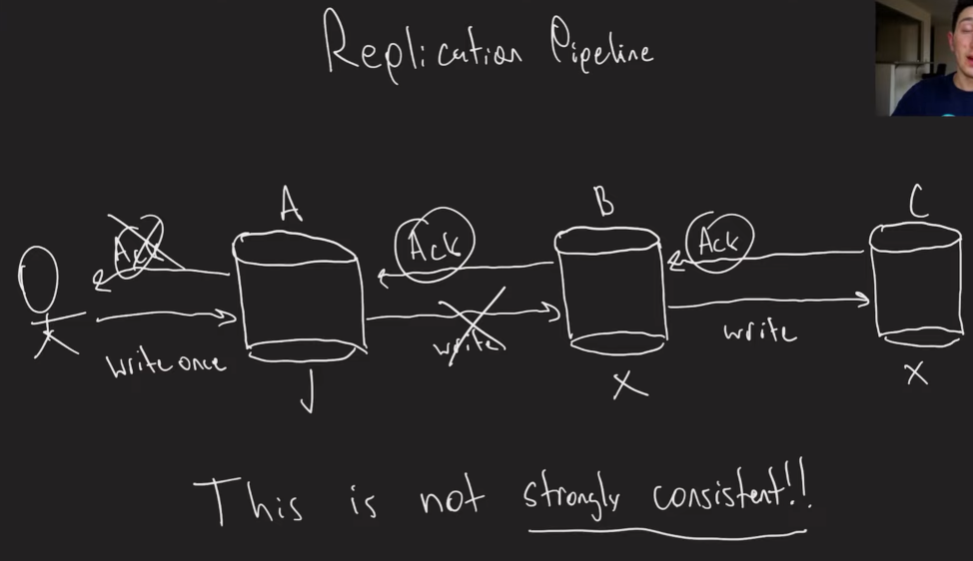 Replication Pipeline
A
B
C
Ack
Ack
Ack
write once
write
write
X
X
This is not strongly consistent!!